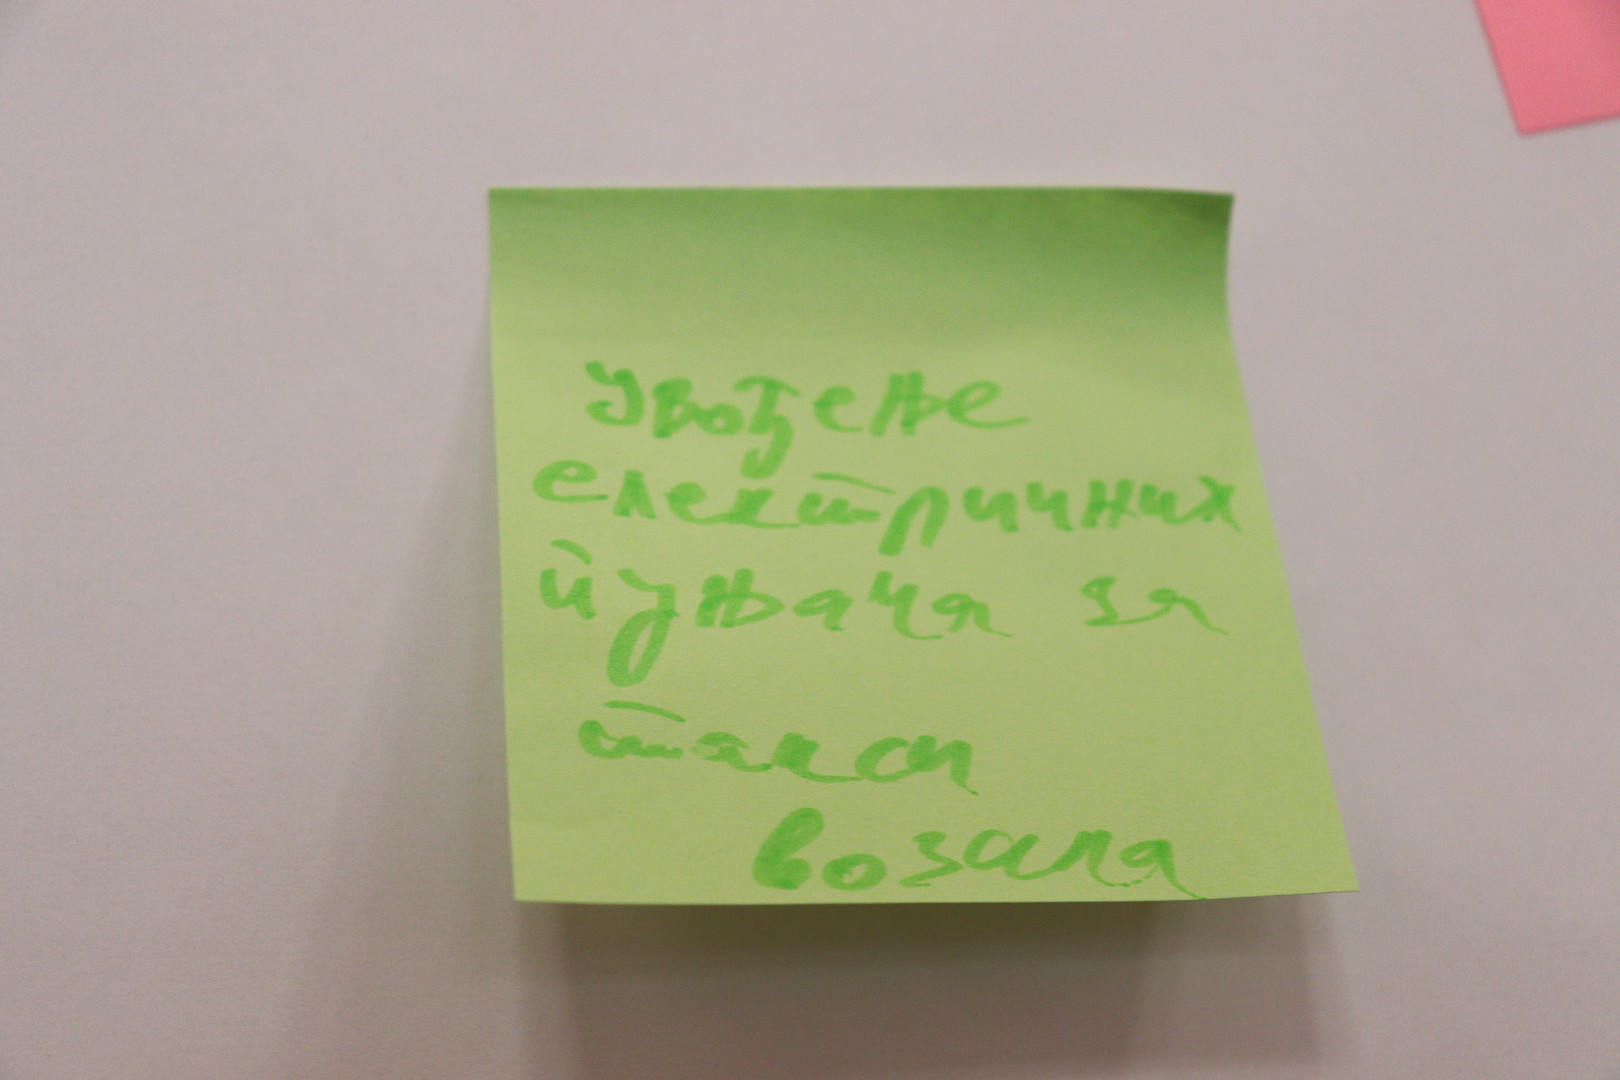 увођење
електричних
пуњача за
такси
возила